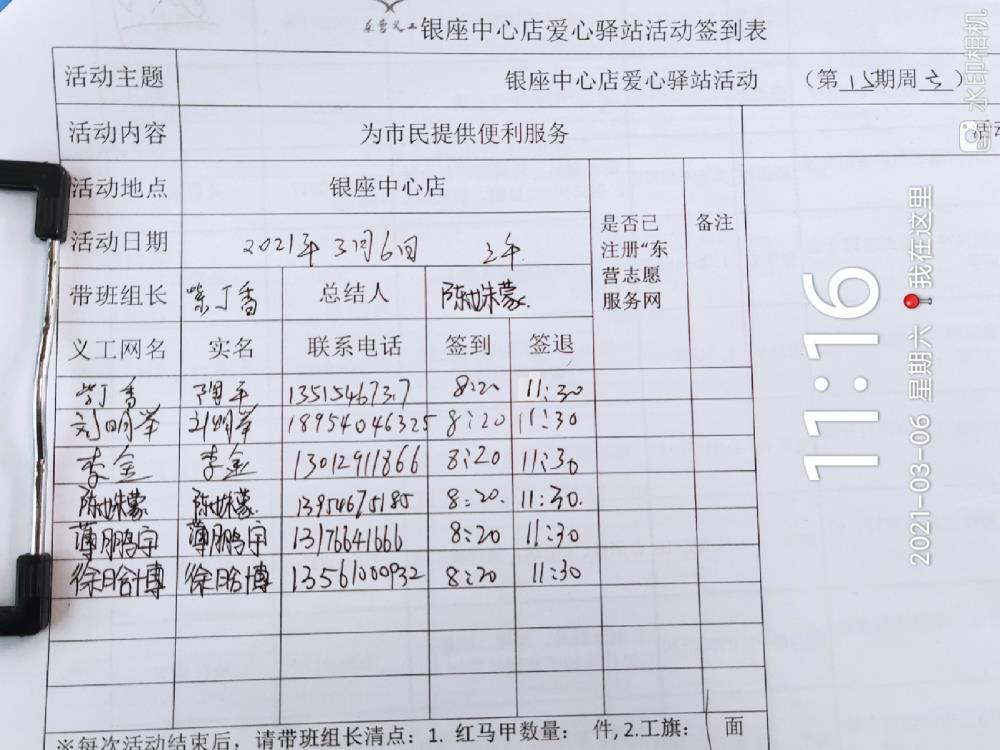 东营义工 银座中心店爱心驿站活动签到表
活动主题 银座中心店爱心驿站活动 (第15期周六)
活动内容 为市民提供便利服务 活动
活动地点 银座中心店
活动日期 2021年3月6日 上午
是否已注册“东营志愿服务网 备注
带班组长 紫丁香 总结人 陈姝蒙
义工网名 实名 联系电话 签到 签退
紫丁香 陶平 1351546737 8:20 11:30
刘明举 刘明举 18954046325 8:20 11:30
李金 李金 13012911866 8:20 11:30
陈姝蒙 陈姝蒙 13954675185 8:20. 11:30.
薄鹏宇 薄鹏宇 13176641666 8:20 11:30
徐晗博 徐晗博 13561000932 8:20 11:30
※每次活动结束后,请带班组长清点:1. 红马甲数量: 件,2.工旗: 面
水印相机
11:16
2021-03-06 星期六 我在这里